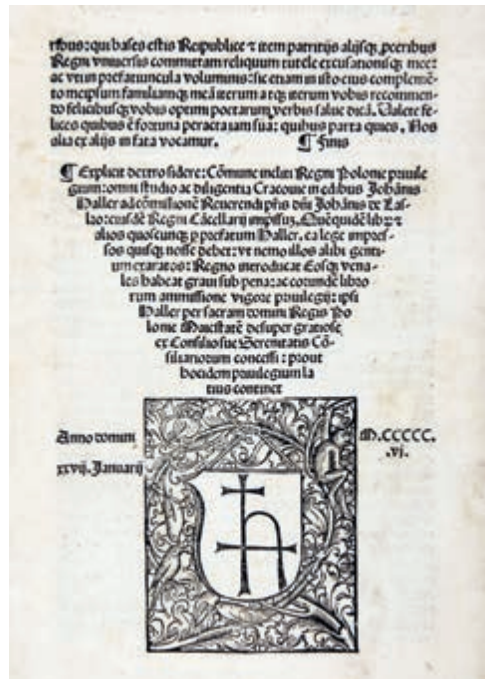 ribus: qui bases estis Reipublice ⁊ item patritijs alijsq̨ ꝓceribus
Regni vniuersis committam reliquum tutele excusationisq̨ mee:
ac vt in prefatiuncula voluminis: sic etiam in isto eius complemē-
to meipsum familiamq̨ meā iterum atq̨ iterum vobis recommen-
do felicibusq̨ vobis optimi poetarum verbis salue dicā. Ualete fe-
lices quibus ē fortuna peracta iam sua: quibus parta quies. Nos
alia ex alijs in fata vocamur. ¶ Finis
¶ Explicit dextro sidere: Cōmune incliti Regni Polonie priuile
gium: omni studio ac diligentia Cracouie in edibus Johānis
Haller ad cōmissionē Reuerendi pr̄is dn̄i Johānis de Las-
ko: eiusdē Regni Cācellarij impssuʒ. Quēquidē librū ⁊
alios quoscunq̨ p prefatum Haller. ea lege impres-
sos quisq̨ nosse debet: vt nemo illos alibi genti-
um exaratos: Regno introducat Eosq̨ vena-
les habeat graui sub pena: ac eorunde libro
rum ammissione vigore priuilegij: ipsi
Haller per sacram domini Regis Po
lonie Maiestatē desuper gratiose
ex Consilio sue Serenitatis Cō-
siliariorum concessi: prout
hocidem priuilegium la
tius continet
Anno domini M.CCCCC.
.vj.
xxvij. Januarij